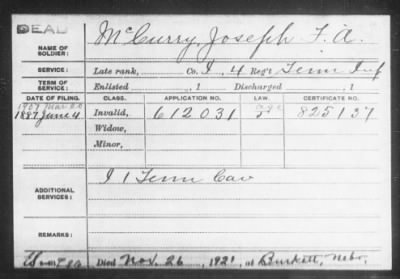 DEAD
NAME OF SOLDIER: McCurry, Joseph F. A.
SERVICE: Late rank, Co. I, 4 Reg't Tenn Inf
TERM OF SERVICE: Enlisted , 1 Discharged , 1
DATE OF FILING. CLASS. APPLICATION NO. LAW. CERTIFICATE NO.
1907 Mar age
1887 June 4 Invalid, 612031 825137
Widow,
Minor,
ADDITIONAL SERVICES: I 1 Tenn Cav
REMARKS:
Died Nov. 26, 1921, at Burkett, Nebr.